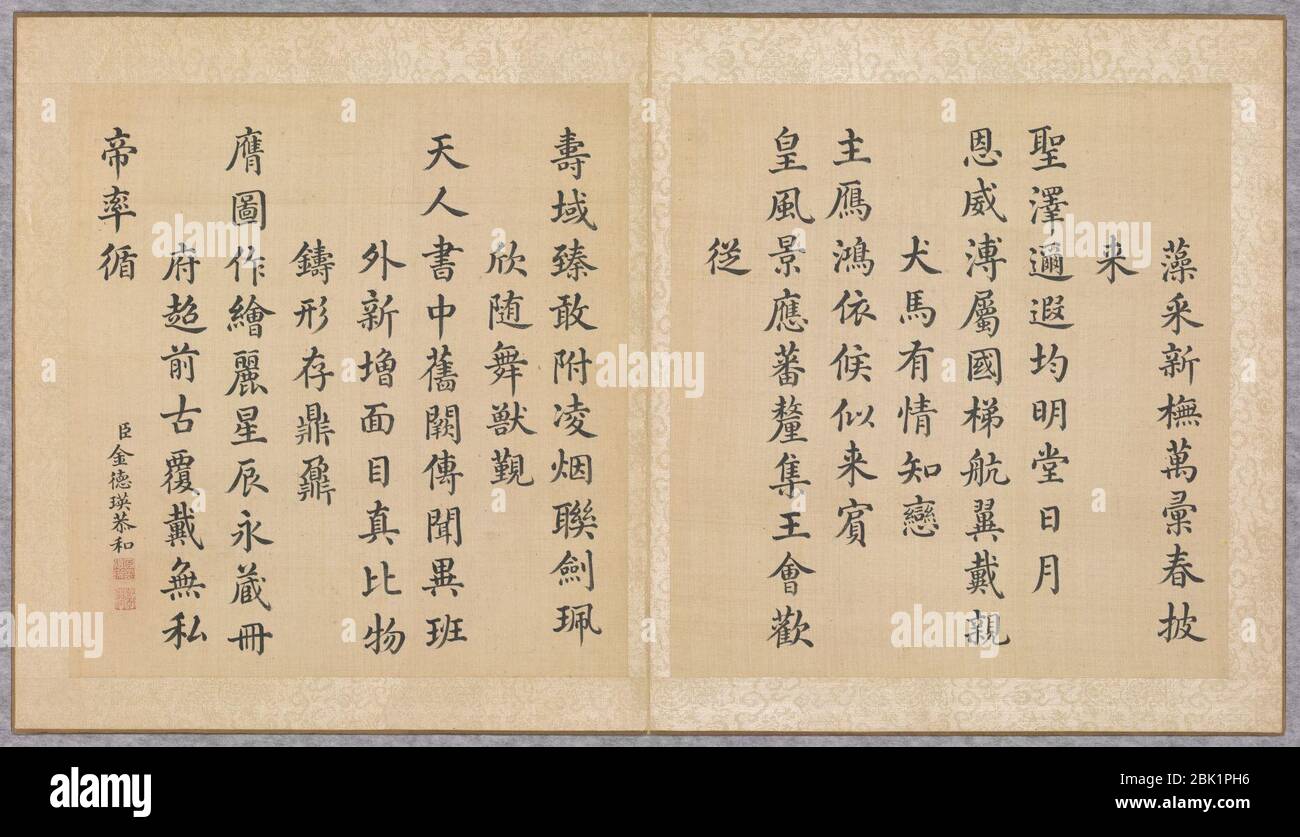 藻采新橅萬彙春披
来
聖澤邇遐均明堂日月
恩威溥屬國梯航翼戴親
犬馬有情知戀
主鴈鴻依候似来賓
皇風景應蕃釐集王會歡
從
壽域臻敢附凌烟聯劍珮
欣随舞獸覲
天人書中舊闕傳聞異班
外新增面目真比物
鑄形存鼎鼐
膺圖作繪麗星辰永蔵冊
府超前古覆戴無私
帝率循
臣金德瑛恭和
alamy
Image ID: 2BK1PH6
www.alamy.com